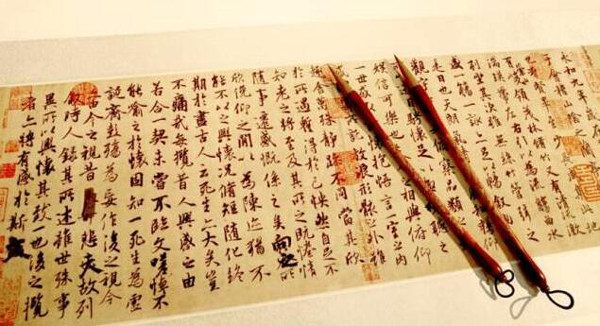 永和九年歲在
于會稽山陰之
也
地
有崇山 茂林脩竹又有清流激
湍暎帶左右引以 流觴曲水
列坐其次雖無絲竹管弦之
盛一觴一詠亦足以暢敘幽
是日也天朗氣 惠風
觀宇 品類之
懷足以
娛信可樂也夫 相與俯仰
一世或取諸 抱悟言一室之內
放浪形骸之外雖
趣舍萬殊靜 不同當其欣
於所遇暫得於己怏然自足不
知老之將至及其所之既惓情
隨事遷感慨係之矣向之所
欣俛仰之間以為陳迹猶不
能不以之興懷況脩短隨化終
期於盡古人云死生亦大矣豈
不痛哉每攬昔人興感之由
若合一契未嘗不臨文嗟悼不
能喻之於懷固知一死生為虛
誕齊彭殤為妄作後之視今
亦由今之視昔悲夫故列
敘時人錄其所述雖世殊事
異所以興懷其致一也後之攬
者亦將有感於斯文